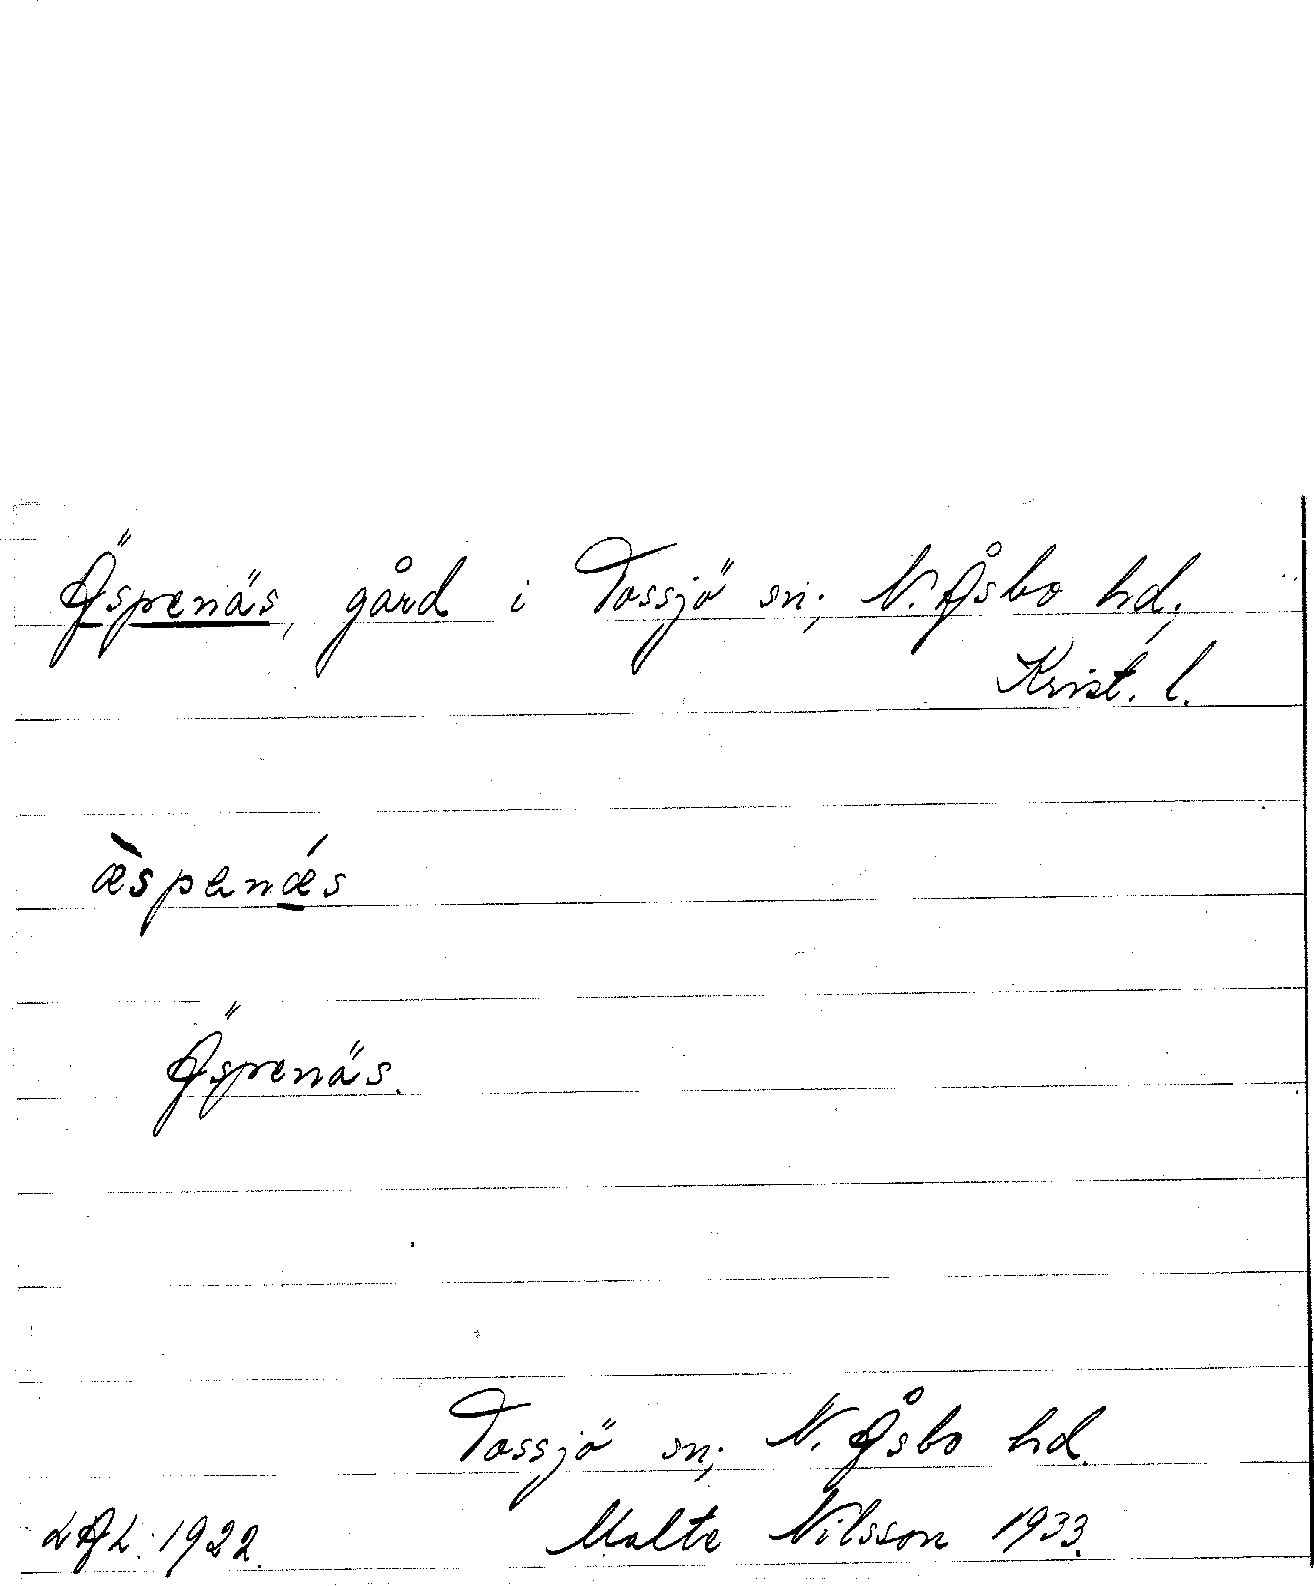 Äspenäs, gård i Tossjö sn; N. Åsbo hd,
Krist. l.
æ̀spenǽs
Äspenäs.
Tossjö sn; N. Åsbo hd.
LAL. 1922. Malte Nilsson 1933.